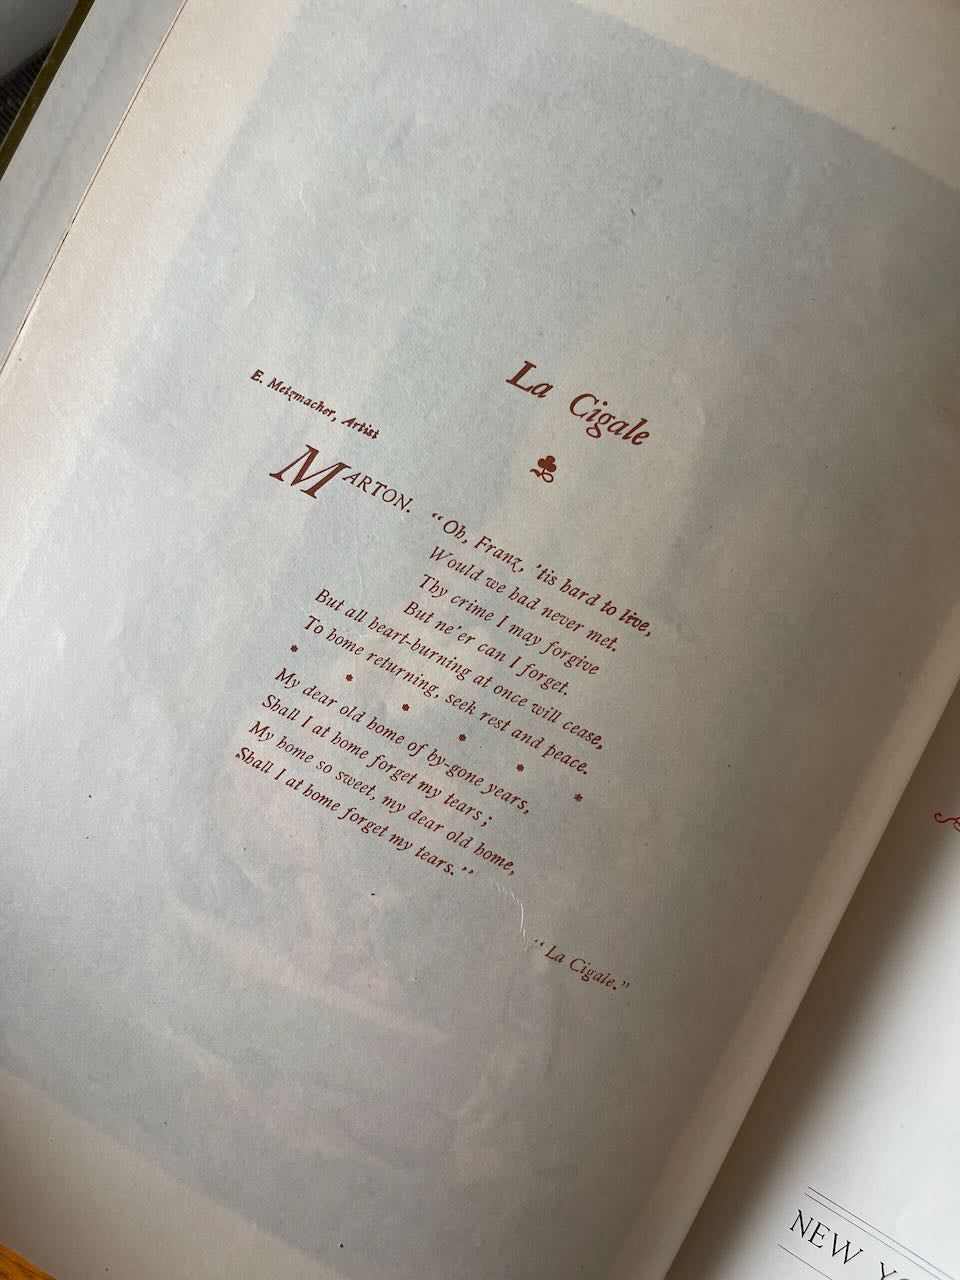 La Cigale
E. Metzmacher, Artist
MARTON. “Oh, Franz, ’tis hard to live,
Would we had never met.
Thy crime I may forgive
But ne’er can I forget.
But all heart-burning at once will cease,
To home returning, seek rest and peace.
* * * * * *
My dear old home of by-gone years,
Shall I at home forget my tears;
My home so sweet, my dear old home,
Shall I at home forget my tears.”
“La Cigale.”
NEW Y